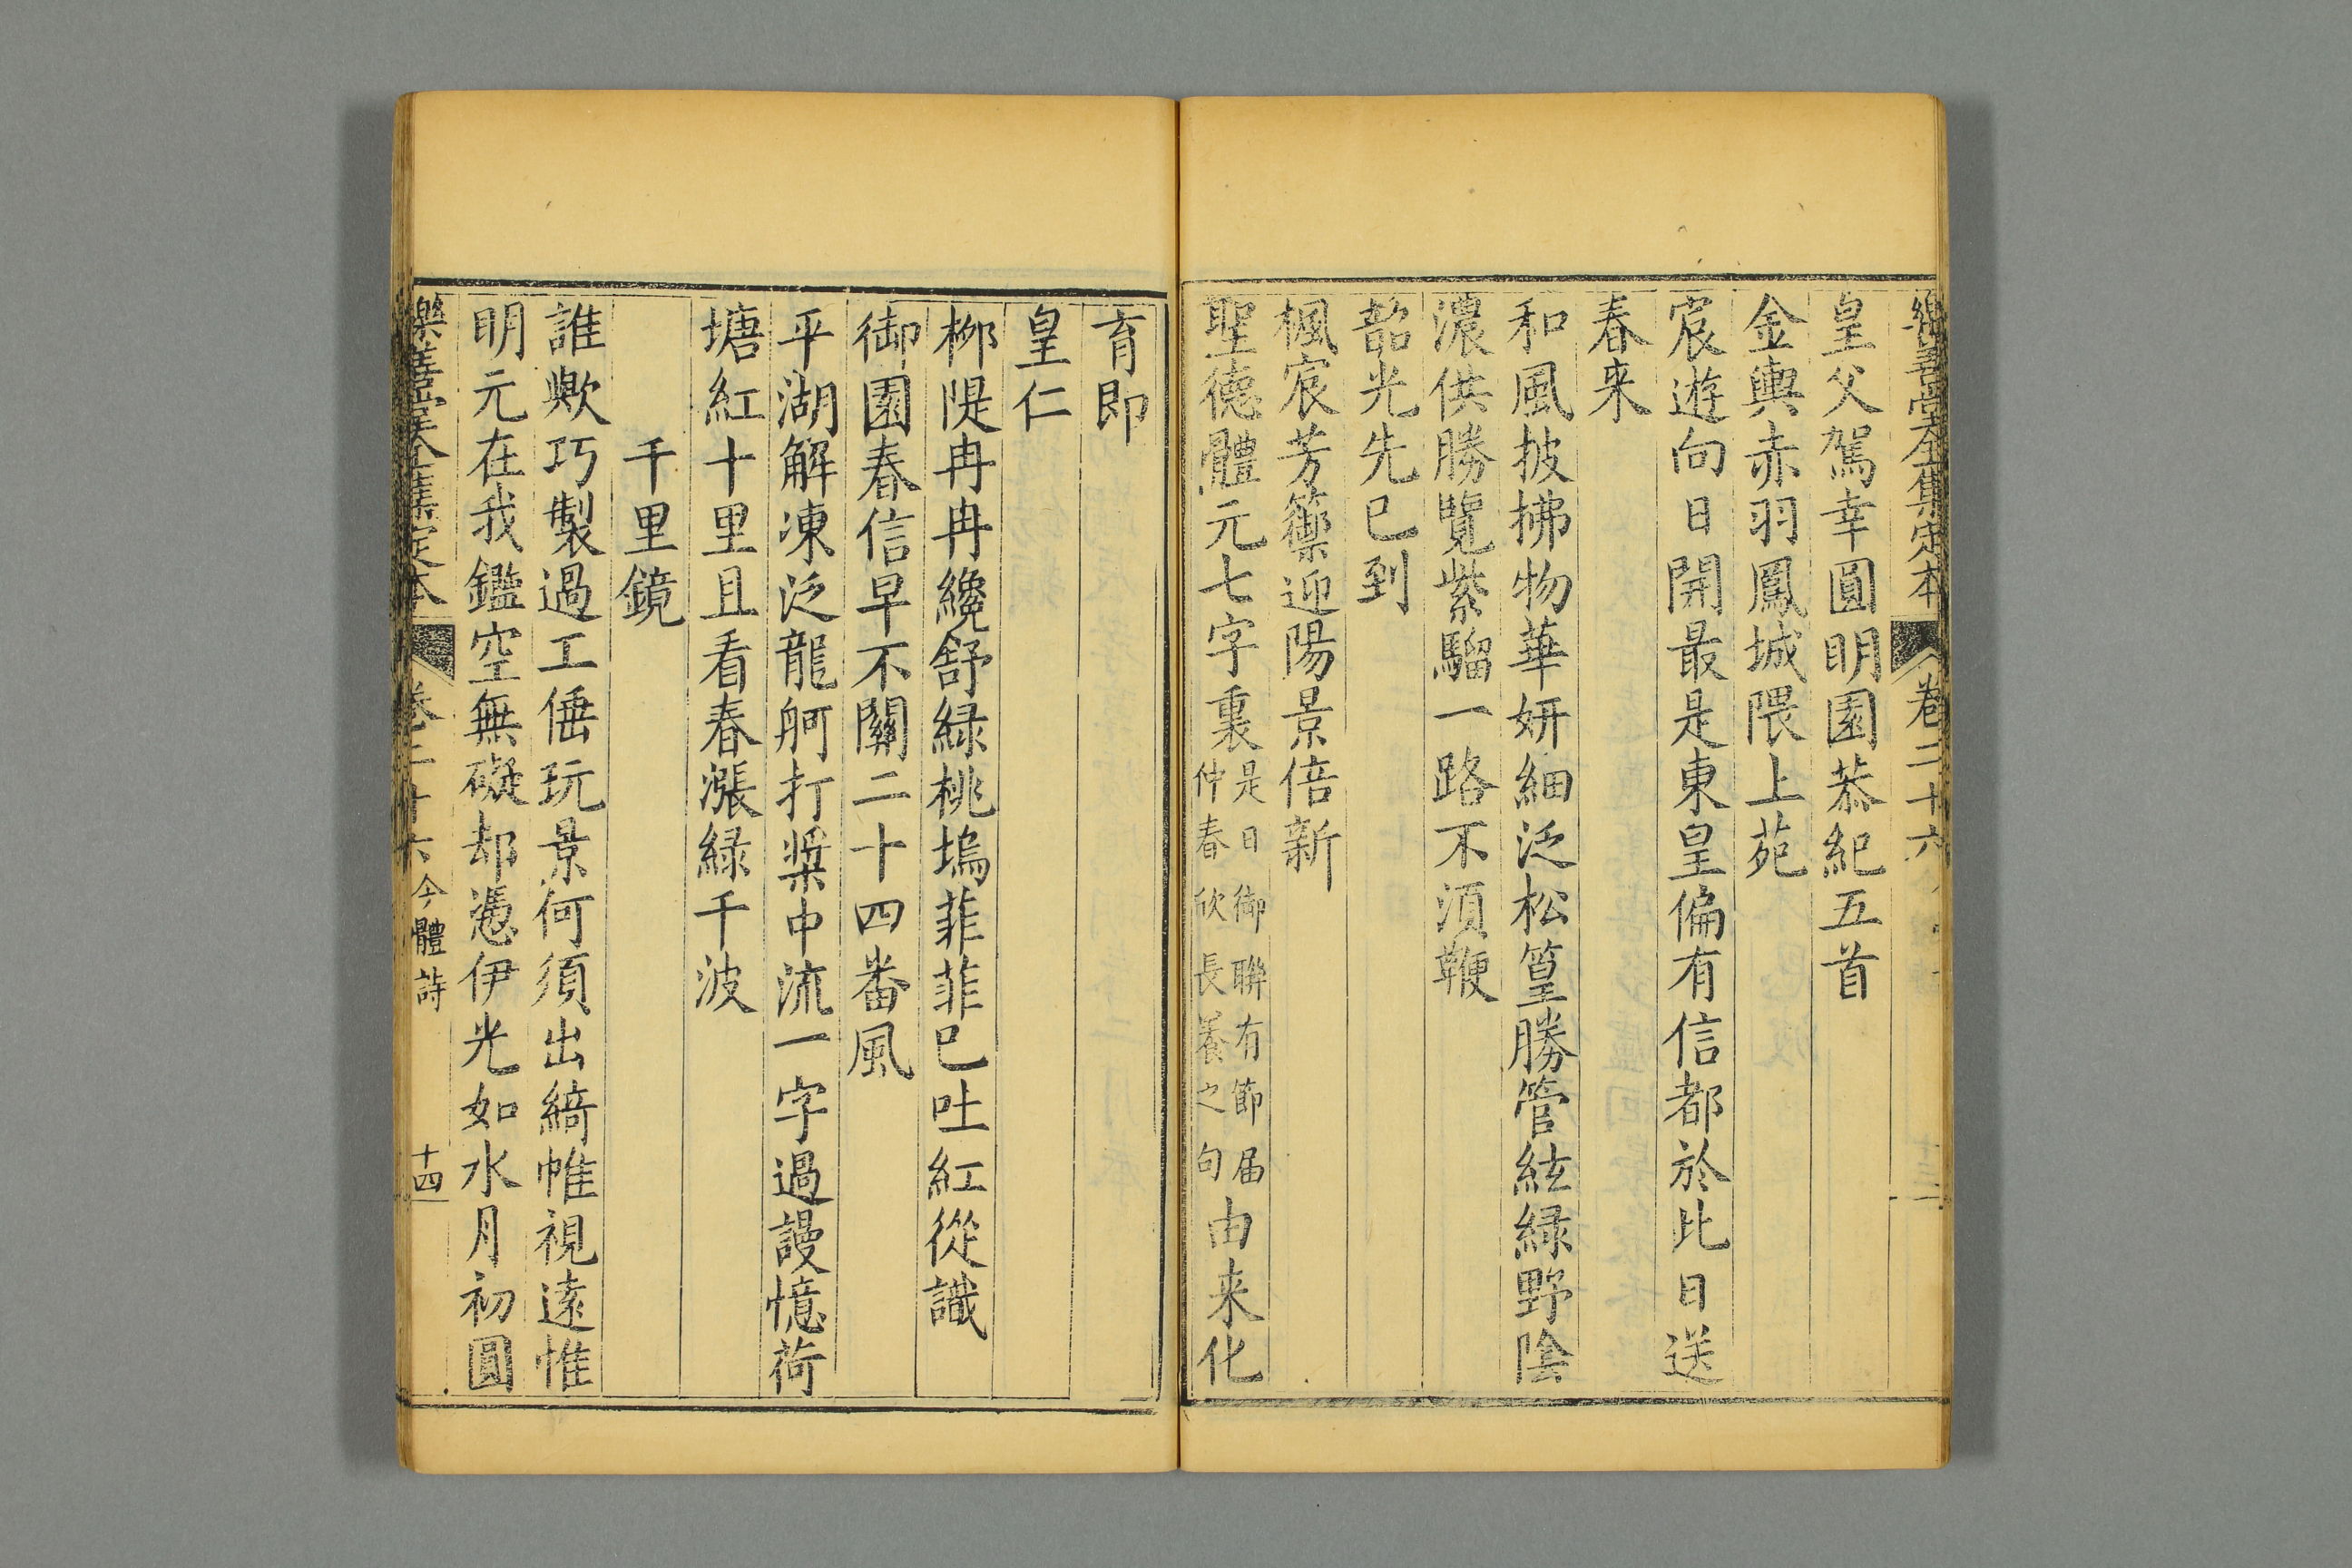 樂善堂全集定本 卷二十六
皇父駕幸圓明園恭紀五首
金輿赤羽鳳城隈上苑
宸遊向日開最是東皇偏有信都於此日送
春来
和風披拂物華妍細泛松篁勝管絃緑野陰
濃供勝覽紫騮一路不湏鞭
韶光先已到
楓宸芳籞迎陽景倍新
聖德體元七字裏是日御聯有節届仲春欣長養之句由来化
育即
皇仁
栁隄冉冉纔舒緑桃塢菲菲已吐紅從識
御園春信早不關二十四番風
平湖解凍泛龍舸打槳中流一字過謾憶荷
塘紅十里且看春漲緑千波
千里鏡
誰歟巧製過工倕玩景何須出綺帷視遠惟
明元在我鑑空無礙却憑伊光如水月初圓
樂善堂全集定本 卷二十六 今體詩 十四